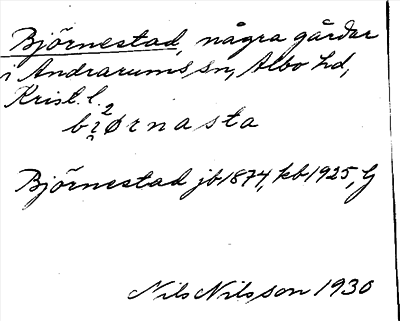 Björnestad, några gårdar
i Andrarums sn, Albo hd,
Krist. l.
bi̯²ørnasta
Björnestad jb1874, kb1925, G
Nils Nilsson 1930